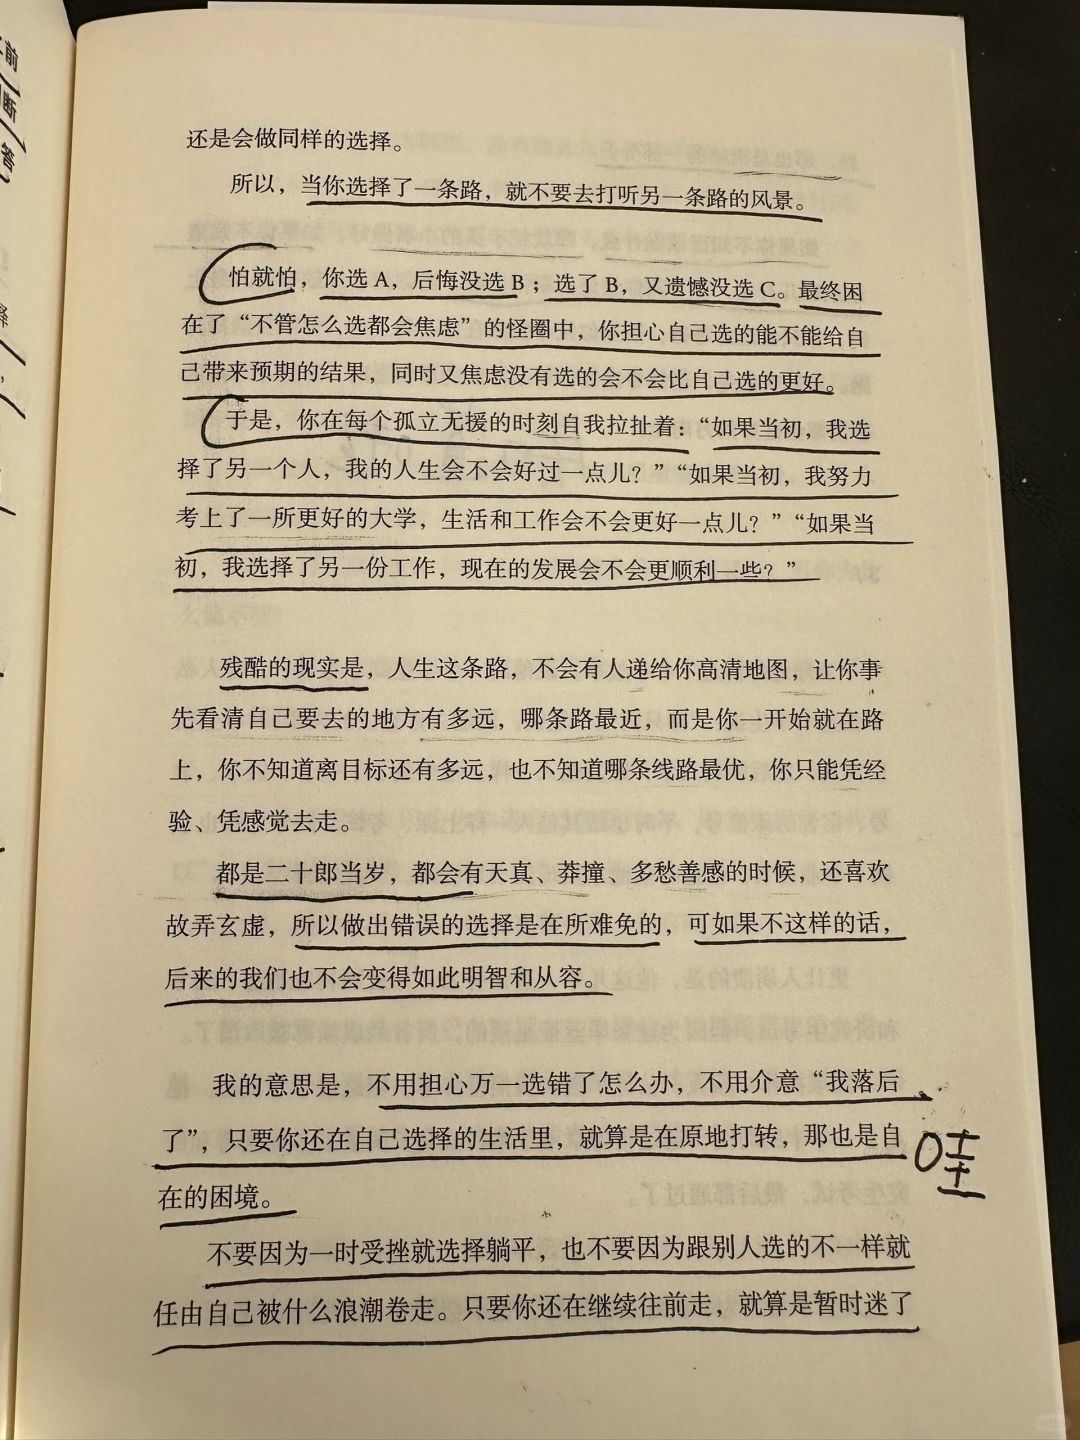 还是会做同样的选择。
所以，当你选择了一条路，就不要去打听另一条路的风景。
怕就怕，你选 A，后悔没选 B；选了 B，又遗憾没选 C。最终困
在了“不管怎么选都会焦虑”的怪圈中，你担心自己选的能不能给自
己带来预期的结果，同时又焦虑没有选的会不会比自己选的更好。
于是，你在每个孤立无援的时刻自我拉扯着：“如果当初，我选
择了另一个人，我的人生会不会好过一点儿？”“如果当初，我努力
考上了一所更好的大学，生活和工作会不会更好一点儿？”“如果当
初，我选择了另一份工作，现在的发展会不会更顺利一些？”
残酷的现实是，人生这条路，不会有人递给你高清地图，让你事
先看清自己要去的地方有多远，哪条路最近，而是你一开始就在路
上，你不知道离目标还有多远，也不知道哪条线路最优，你只能凭经
验、凭感觉去走。
都是二十郎当岁，都会有天真、莽撞、多愁善感的时候，还喜欢
故弄玄虚，所以做出错误的选择是在所难免的，可如果不这样的话，
后来的我们也不会变得如此明智和从容。
我的意思是，不用担心万一选错了怎么办，不用介意“我落后
了”，只要你还在自己选择的生活里，就算是在原地打转，那也是自
在的困境。
哇
不要因为一时受挫就选择躺平，也不要因为跟别人选的不一样就
任由自己被什么浪潮卷走。只要你还在继续往前走，就算是暂时迷了
前
断
答